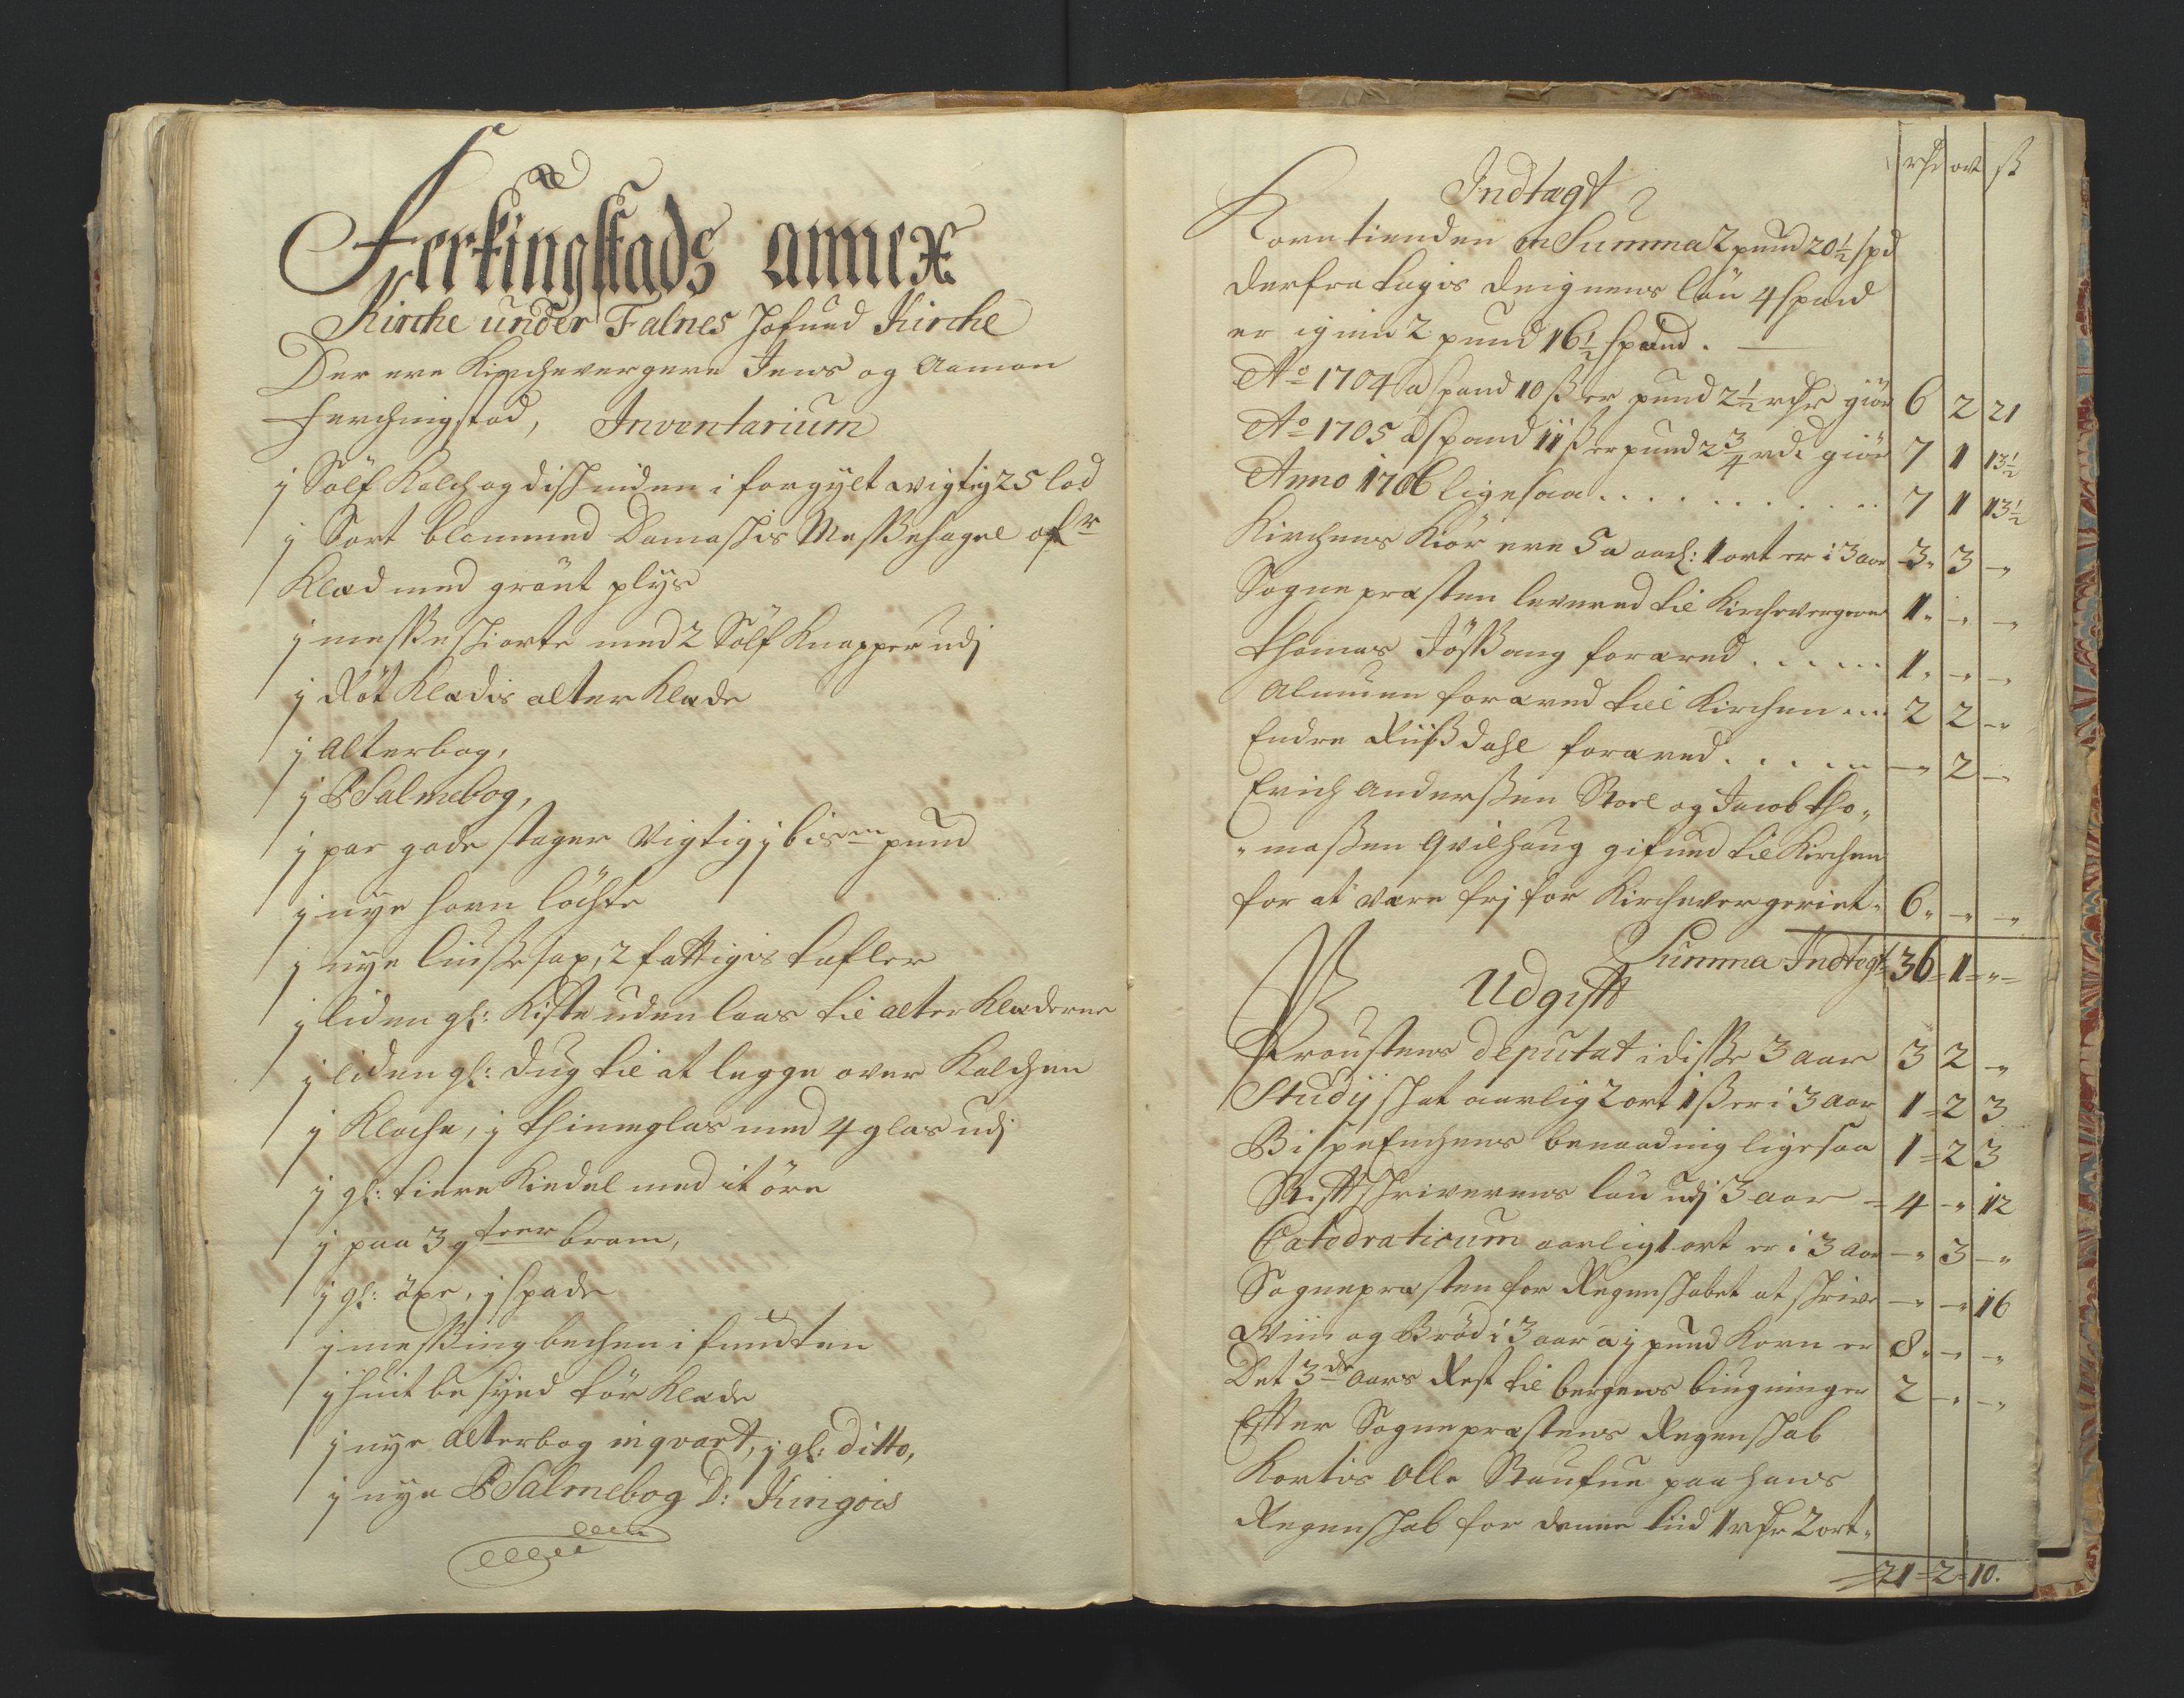 Ferkingstads annex
Kirche under Falnes Hofued Kirche
Der ere Kirchevergere Jens og Aamon
Ferchingstad, Inventarium
j Sölf Kalch og dissch inden i forgylt wigtig 25 lod
j Sort blommed Damaskis Messehagel af
Klæd med grönt plys
j messeschiorte med 2 Sölf Knapper udj
j Röt Klædis alter Klæde
j Alterbog,
j PSalmebog,
j par gode stager Vigtig j bis pund
j nye horn löchte
j nye liusse sax, 2 fattigis tafler
j liden gl: Kiste uden laas til alter Klæderne
j liden gl: dug til at legge over Kalchen
j Kloche, j thimeglas med 4 glas udj
j gl: tiere Kiedel med it öre
j paa 3 qteer bram,
j gl: öxe, j spade
j messing bechen i funten
j huit be syed för Klæde
j nye alterbog in qvart, j gl: ditto,
j nye PSalmebog D: Kingois
rdr ort ß
Indtagt
Korn tienden er Summa 2 pund 20½ spd
derfra tagis deignens lön 4 spand
er igien 2 pund 16½ spand.
Ao 1704 a spand 10 ß er pund 2½ rdr giör 6 2 21
Ao 1705 a spand 11 ß er pund 2¾ rdr giör 7 1 13½
Anno 1706 ligesaa . . . . 7 1 13½
Kirchens Kiör ere 5 a aarl: 1 ort er i 3 aar 3 3 -
Sognepræsten leverud til Kirchevergerne 1 - -
Thomas Jössang forærud . . . . 1 - -
Almuen forærud till Kirchen .... 2 2 -
Endre Riißdahl forærud . . . . - 2 -
Erich Anderssen Stoel og Jacob Tho-
-massen Qvilhaug gifuud til Kirchen
for at være frj for Kirchevergeriet. 6 - -
Summa Indtegt 36 - 1 - -
Udgift
Proustens deputat i disse 3 aar 3 2 -
Studij skat aarlig 2 ort 1 ß er i 3 aar 1 2 3
Bispe Enchens benaading ligesaa 1 2 3
Stiftschriverens lön udj 3 aar - 4 - 12
Catedraticum aarlig 1 ort er i 3 aar - 3 -
Sognepræsten for Regenschabet at schrive - - 16
Wiin og Bröd i 3 aar a j pund Korn er 8 - -
Det 3de Aars Rest til bergens biugninger 2 - -
Efter Sognepræstens Regenschab
Kortis Olle Staufue paa hans
Regenschab for denne tiid 1 rdr 2 ort.
21 - 2 - 10.